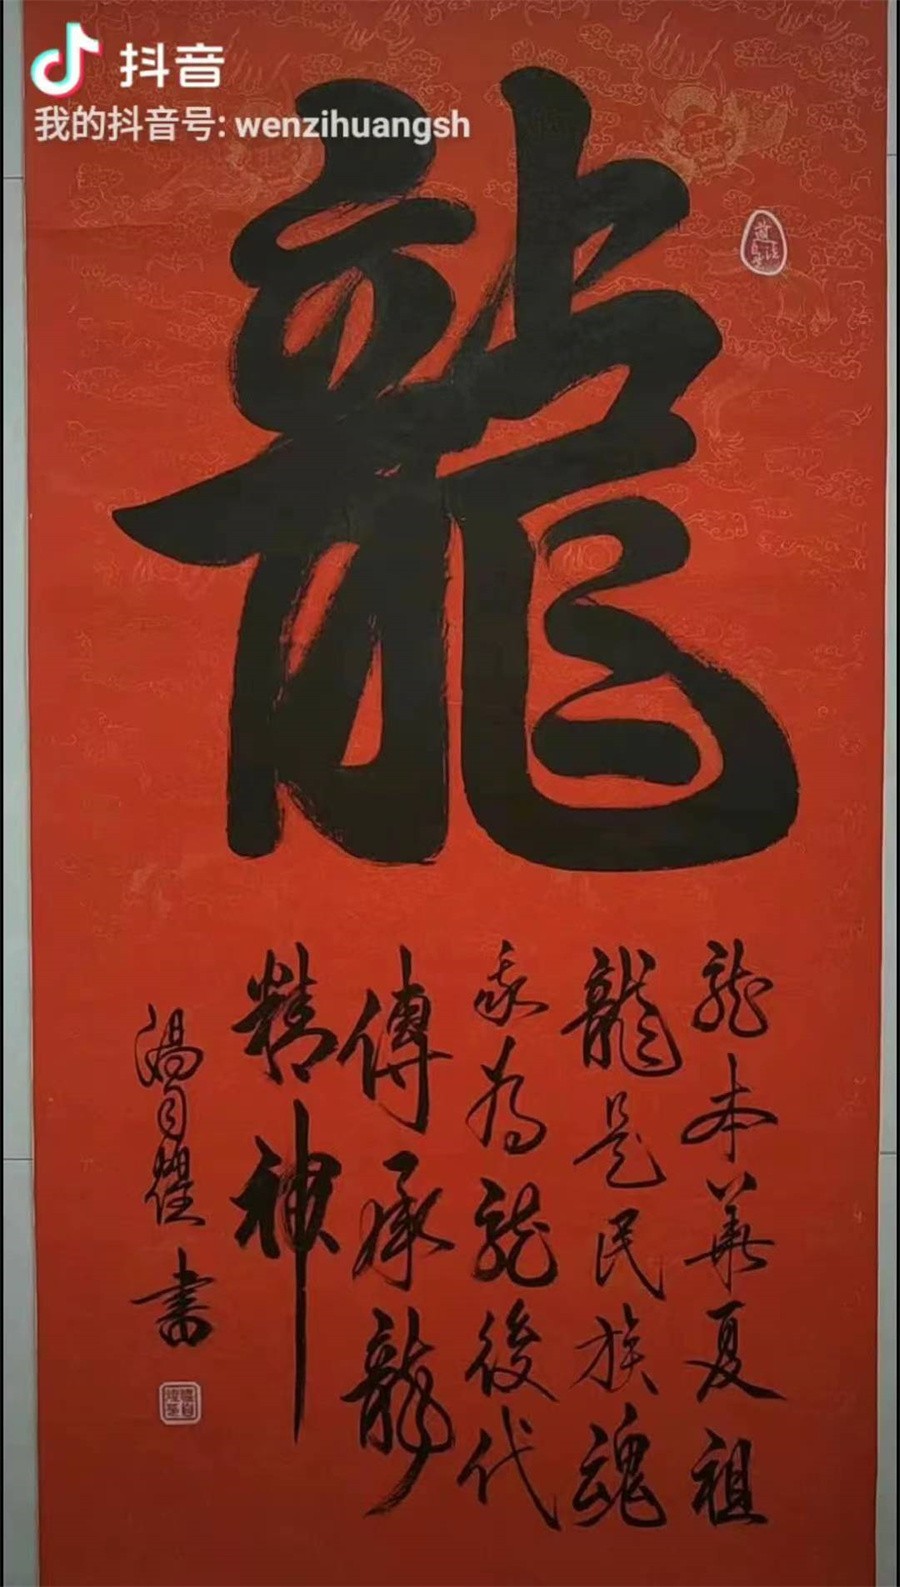 抖音
我的抖音号: wenzihuangsh
龍
龍本華夏祖
龍是民族魂
我为龍後代
傳承龍
精神
書